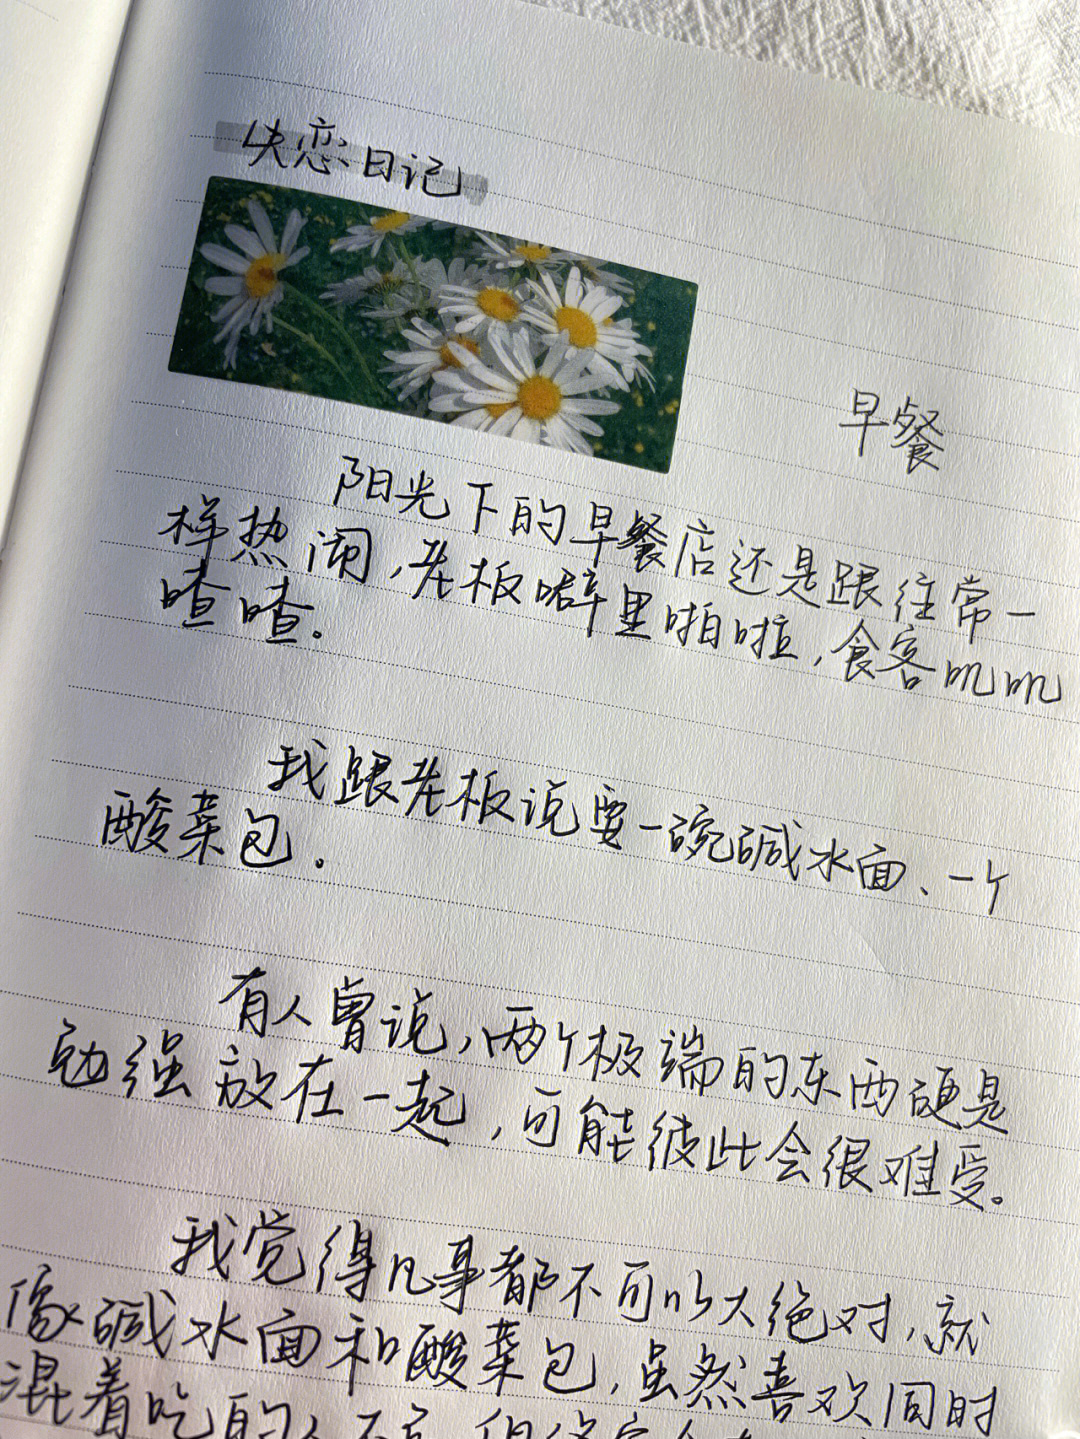 失恋日记
早餐
阳光下的早餐店还是跟往常一
样热闹,老板噼里啪啦,食客叽叽
喳喳。
我跟老板说要一碗碱水面、一个
酸菜包.
有人曾说,两个极端的东西硬是
勉强放在一起,可能彼此会很难受。
我觉得凡事都不可以太绝对,就
像碱水面和酸菜包,虽然喜欢同时
混着吃的人不